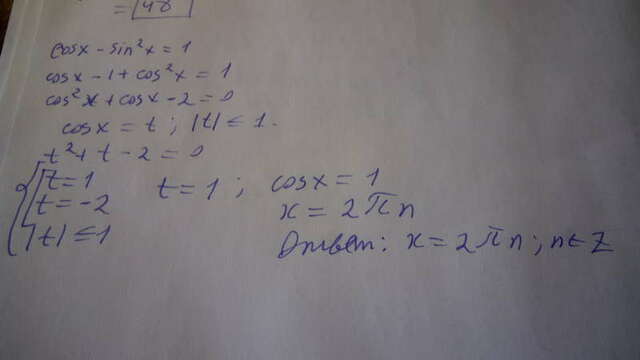 = 48
cosx - sin²x = 1
cosx - 1 + cos²x = 1
cos²x + cosx - 2 = 0
cosx = t ; |t| ≤ 1.
t² + t - 2 = 0
t = 1 t = 1 ; cosx = 1
t = -2 x = 2πn
|t| ≤ 1 Ответ: x = 2πn ; n ∈ Z